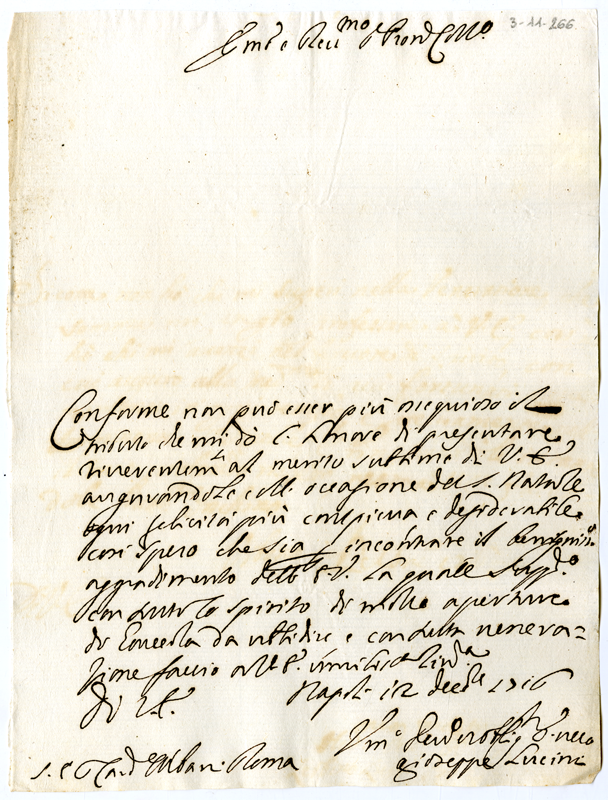 3-11-266
Em.o e Reu.mo Sig.r Pron Coll.mo
Conforme non può esser più ossequioso il
tributo che mi dò l'Honore di presentare
riverentem.te al merito sublime di V. E.
augurandole coll'occasione del S. Natale
ogni felicità più conspicua e desiderabile
così spero che sia p incontrare il benignis.o
aggradimento dell'E.V. la quale supp.o
con tutto lo spirito di molte aperture
di honorarla da ubbidire e con tutta venera=
zione faccio all'E.V. umiliss.a riv.a
Di V.E. Napoli 12 decb.e 1716
Vm.o Dev. Obblig. Ser. vero
Giuseppe Lucini
S. E. Card. Albani Roma